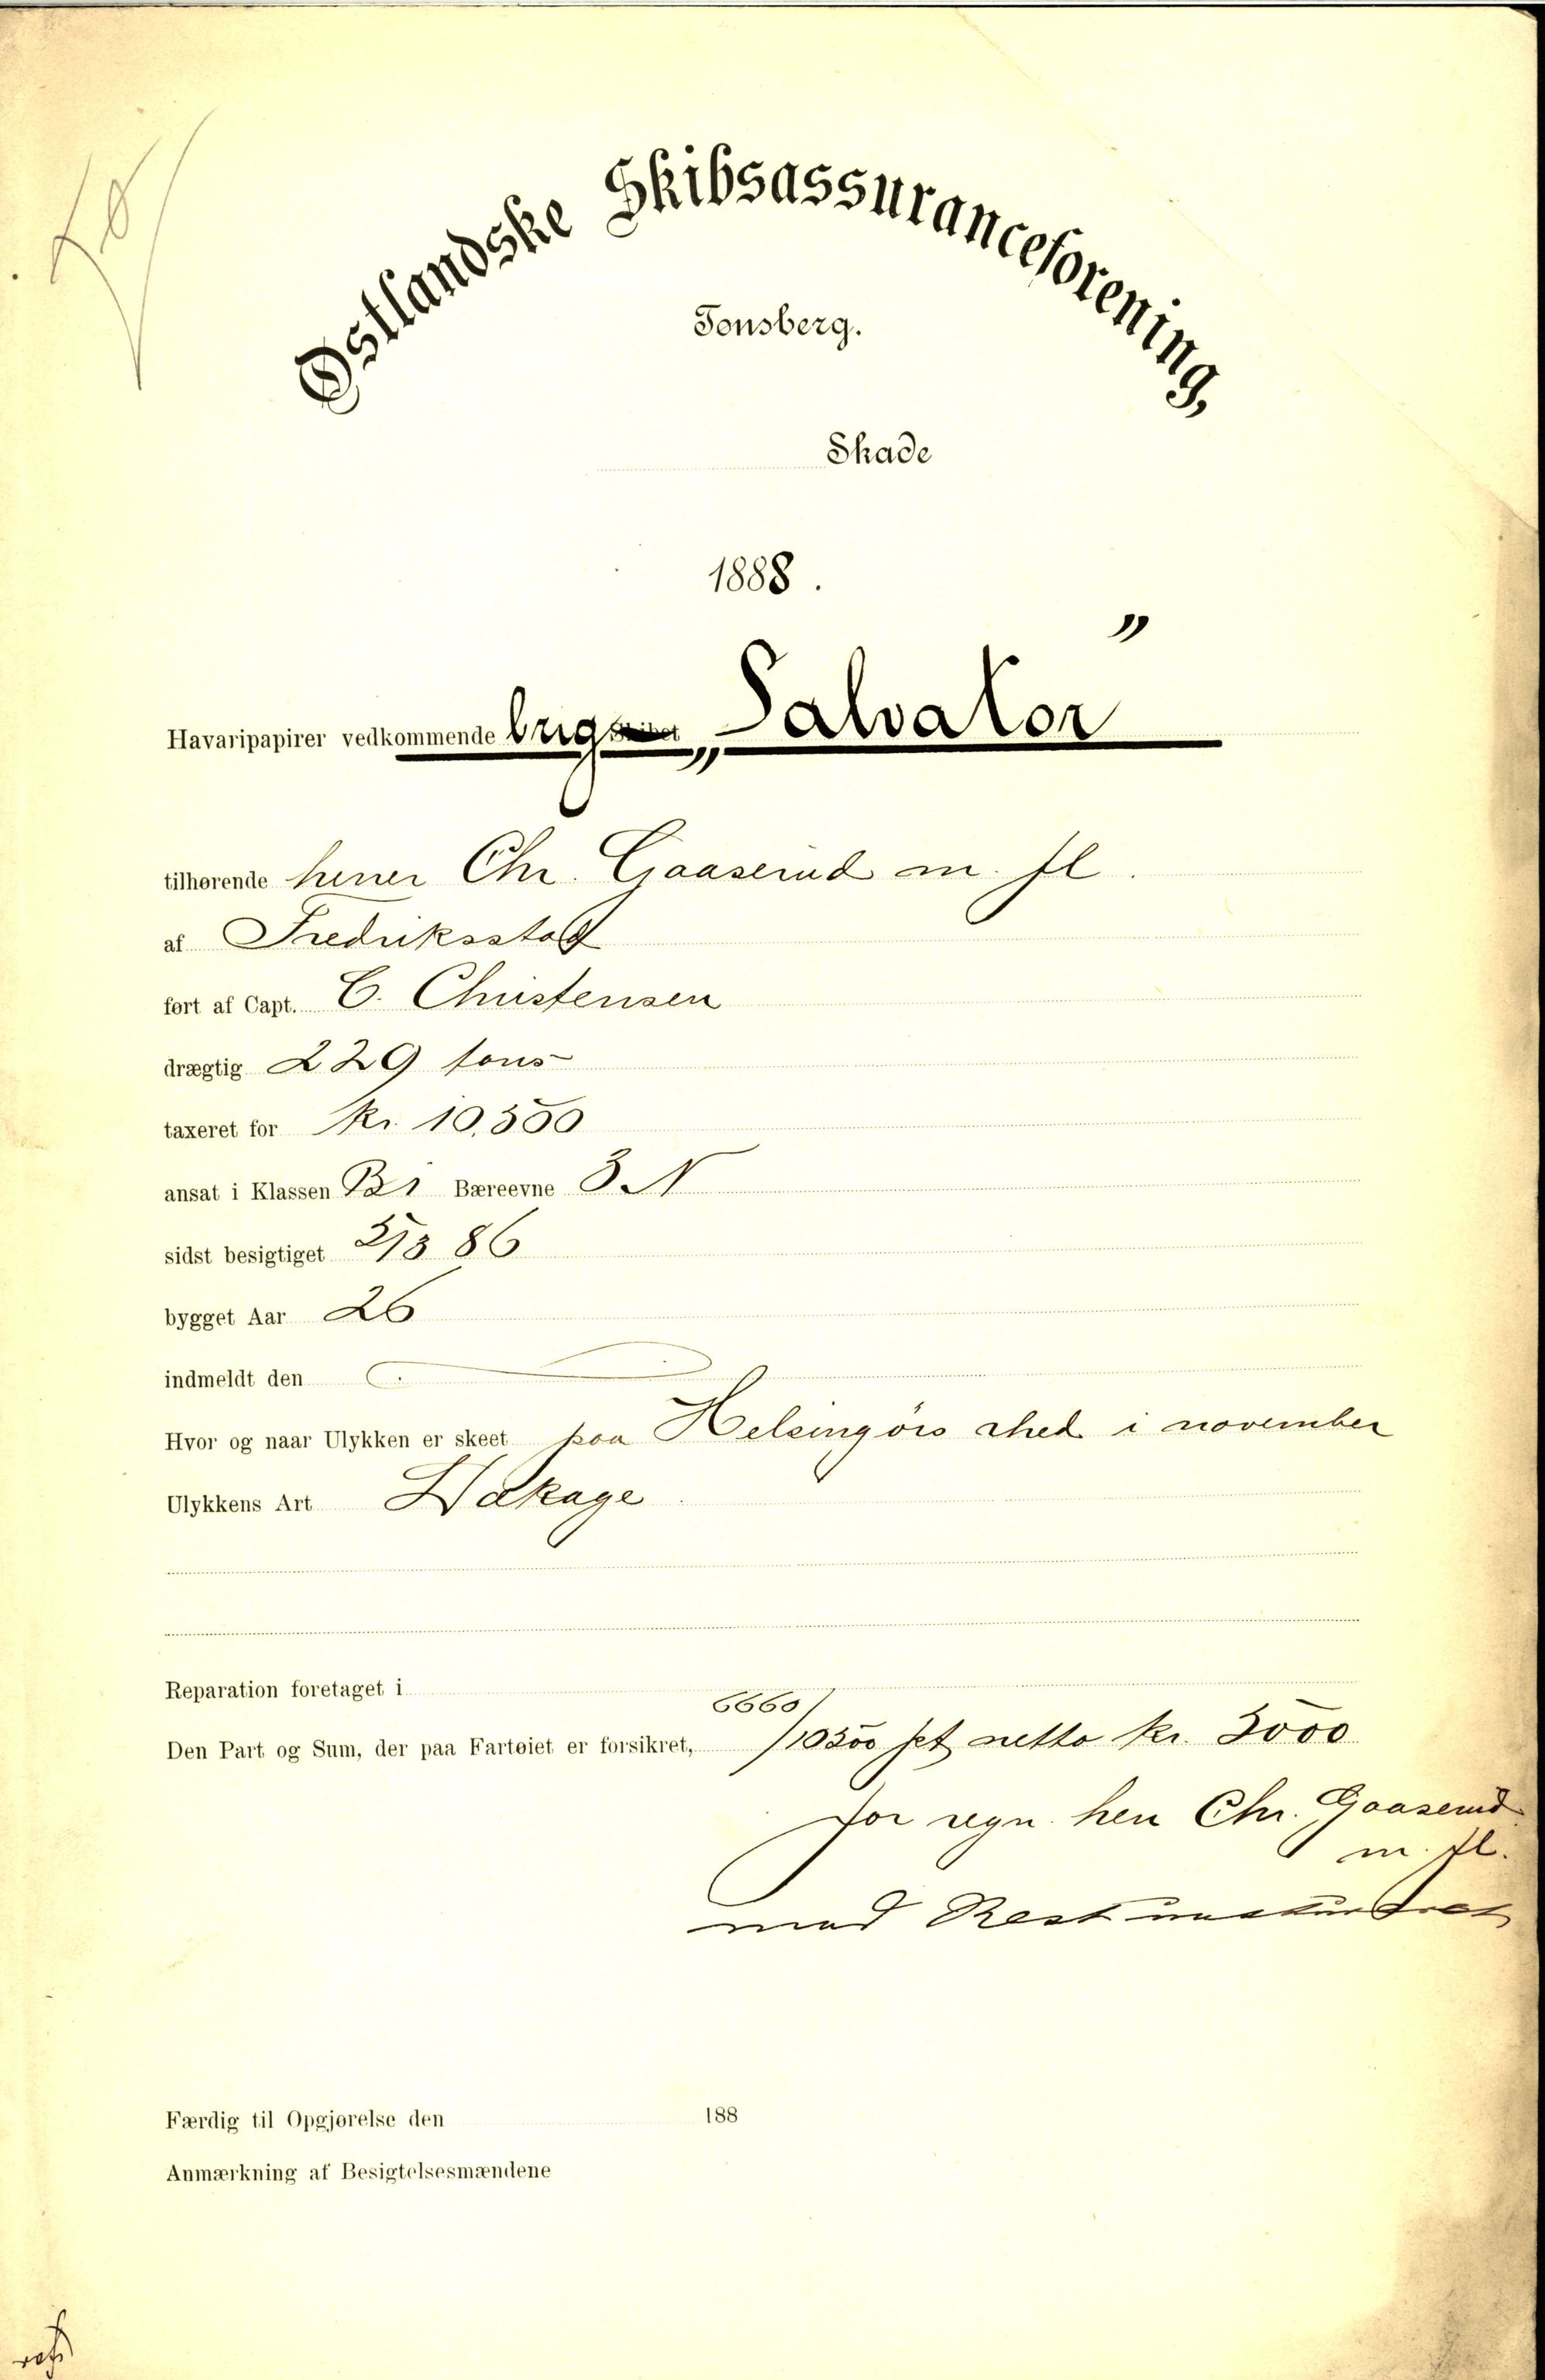 Østlandske Skibsassuranceforening,
Tønsberg.
Skade
1888.
Havaripapirer vedkommende brig Skibet „Salvator”
tilhørende herrer Chr. Gaaserud m. fl.
af Fredriksstad
ført af Capt. C. Christensen
drægtig 229 tons
taxeret for kr. 10.500
ansat i Klassen B1 Bæreevne 3 N
sidst besigtiget 5/3 86
bygget Aar 26
indmeldt den
Hvor og naar Ulykken er skeet paa Helsingörs rhed i november
Ulykkens Art Lækage
Reparation foretaget i
Den Part og Sum, der paa Fartøiet er forsikret, 6660/10500 pt netto kr. 5000
for regn. herr Chr. Gaaserud
m. fl.
mod Rest
Færdig til Opgjørelse den 188
Anmærkning af Besigtelsesmændene